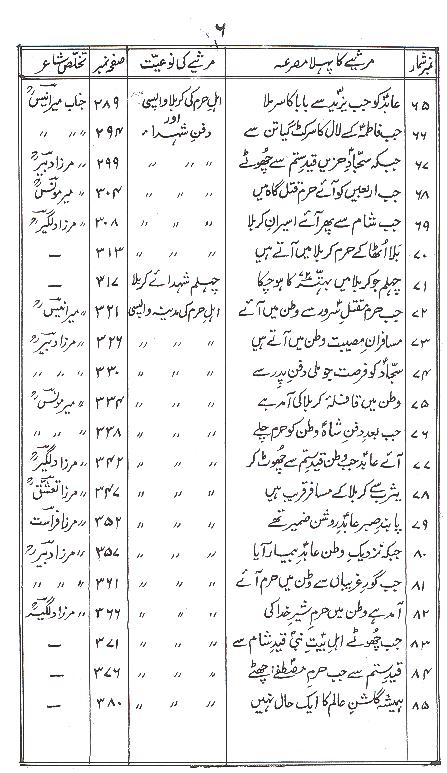 ۶
نمبر شمار	مرثیے کا پہلا مصرعہ	مرثیے کی نوعیت	صفحہ نمبر	تخلص شاعر
۶۵	عابدؑ کو جب یزید سے بابا کا سر ملا	اہل حرم کی کربلا واپسی اور	۲۸۹	جناب میر انیسؔ
۶۶	جب فاطمہؑ کے لال کا سر کٹ گیا تن سے	دفن شہداء	۲۹۴	〃 〃 〃
۶۷	جب کہ سجادِؑ حزیں قیدِ ستم سے چھوٹے	〃 〃 〃	۲۹۹	〃 مرزا دبیرؔ
۶۸	جب اربعیں کو آئے حرم قتل گاہ میں	〃 〃	۳۰۴	〃 میر مونسؔ
۶۹	جب شام سے پھر آئے اسیرانِ کربلا	〃 〃	۳۰۸	〃 مرزا دلگیرؔ
۷۰	بلا اٹھا کے حرم کربلا میں آتے ہیں	〃 〃 〃	۳۱۳	—
۷۱	چہلم جو کربلا میں بہترؑ کا ہو چکا	چہلم شہدائے کربلا	۳۱۷	—
۷۲	جب حرم مقتلِ سرور سے وطن میں آئے	اہل حرم کی مدینہ واپسی	۳۲۱	〃 میر انیسؔ
۷۳	مسافرانِ مصیبت وطن میں آتے ہیں	〃 〃 〃	۳۲۶	〃 مرزا دبیرؔ
۷۴	سجادؑ کو فرصت جو ملی دفنِ پدر سے	〃 〃 〃	۳۳۰	〃 〃
۷۵	وطن میں قافلۂ کربلا کی آمد ہے	〃 〃 〃	۳۳۴	〃 میر مونسؔ
۷۶	جب بعد دفنِ شاہ وطن کو حرم چلے	〃 〃 〃	۳۳۸	〃 〃 〃
۷۷	آئے عابدؑ جب وطن قیدِ ستم سے چھوٹ کر	〃 〃 〃	۳۴۲	〃 مرزا دلگیرؔ
۷۸	یثرب سے کربلا کے مسافر قریب ہیں	〃 〃 〃	۳۴۷	〃 مرزا تعشقؔ
۷۹	پابندِ صبر عابدِ روشن ضمیر تھے	〃 〃 〃	۳۵۲	〃 مرزا فراست
۸۰	جبکہ نزدیکِ وطن عابدِؑ بیمار آیا	〃 〃 〃	۳۵۷	〃 مرزا دبیرؔ
۸۱	جب گورِ غریباں سے وطن میں حرم آئے	〃 〃 〃	۳۶۱	〃 〃 〃
۸۲	آمد ہے وطن میں حرمِ شیرِ خدا کی	〃 〃	۳۶۶	〃 مرزا دلگیرؔ
۸۳	جب چھوٹے اہلِ بیتِ نبیؐ قیدِ شام سے	〃 〃 〃	۳۷۱	—
۸۴	قیدِ ستم سے جب حرمِ مصطفےٰؐ چھٹے	〃 〃 〃	۳۷۶	—
۸۵	ہمیشہ گلشنِ عالم کا ایک حال نہیں	〃 〃 〃	۳۸۰	—